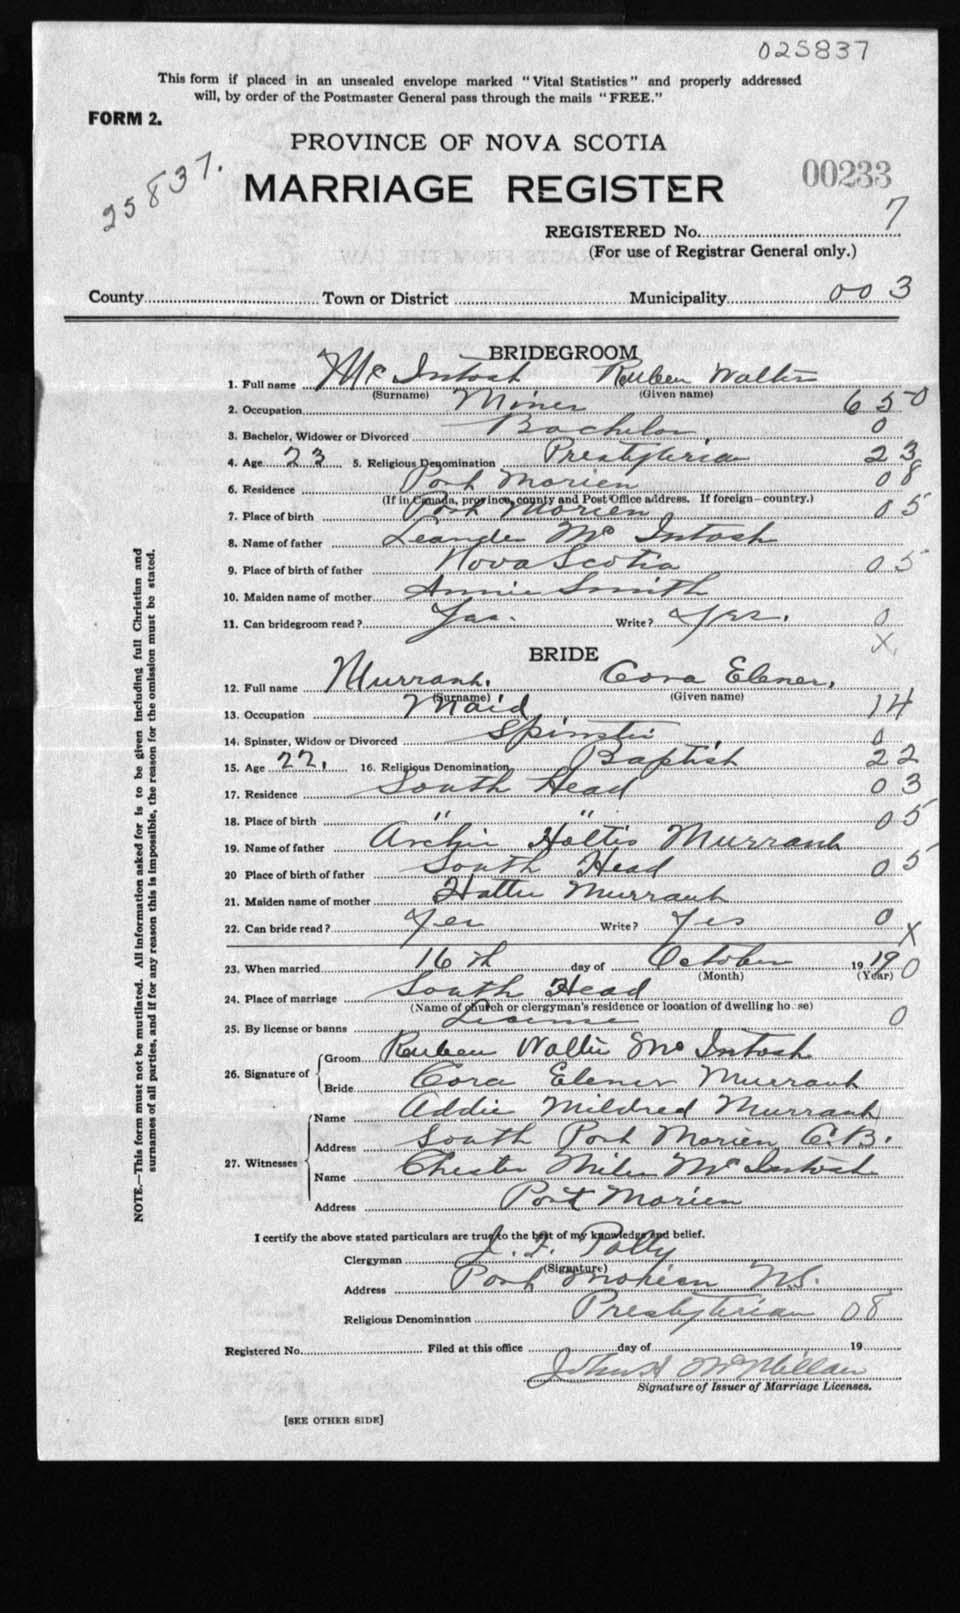 025837
This form if placed in an unsealed envelope marked "Vital Statistics" and properly addressed
will, by order of the Postmaster General pass through the mails "FREE."
FORM 2.
PROVINCE OF NOVA SCOTIA
25837.
MARRIAGE REGISTER
00233
REGISTERED No. 7
(For use of Registrar General only.)
County Town or District Municipality 003
BRIDEGROOM
1. Full name McIntosh Reuben Walter
(Surname) (Given name)
2. Occupation Miner 650
3. Bachelor, Widower or Divorced Bachelor. 0
4. Age 23 5. Religious Denomination Presbyterian 23
6. Residence Port Morien 08
(If in Canada, province, county and Post Office address. If foreign—country.)
7. Place of birth Port Morien 05
8. Name of father Leander McIntosh
9. Place of birth of father Nova Scotia 05
10. Maiden name of mother Annie Smith
11. Can bridegroom read? Yes. Write? Yes. 0
X.
BRIDE
12. Full name Murrant. Cora Elener.
(Surname) (Given name)
13. Occupation Maid 14
14. Spinster, Widow or Divorced Spinster 0
15. Age 22. 16. Religious Denomination Baptist 22
17. Residence South Head 03
18. Place of birth " " 05
19. Name of father Archie Murrant
20 Place of birth of father South Head 05
21. Maiden name of mother Hattie Murrant
22. Can bride read? Yes Write? Yes 0
X
23. When married 16th day of October 1919 0
(Month) (Year)
24. Place of marriage South Head
(Name of church or clergyman's residence or location of dwelling house)
25. By license or banns License 0
26. Signature of Groom Reuben Walter McIntosh
Bride Cora Elener Murrant
27. Witnesses Name Addie Mildred Murrant
Address South Port Morien C.B.
Name Chester McIntosh
Address Port Morien
I certify the above stated particulars are true to the best of my knowledge and belief.
Clergyman J. F. Polly
(Signature)
Address Port Morien N.S.
Religious Denomination Presbyterian 08
Registered No. Filed at this office day of 19
John A McMillan
Signature of Issuer of Marriage Licenses.
[SEE OTHER SIDE]
NOTE.—This form must not be mutilated. All information asked for is to be given including full Christian and
surnames of all parties, and if for any reason this is impossible, the reason for the omission must be stated.